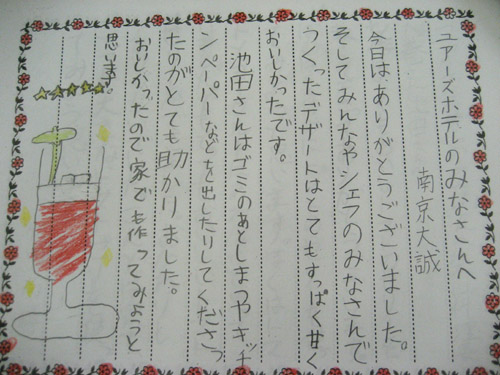 ユアーズホテルのみなさんへ
南京大誠
今日はありがとうございました。
そしてみんなやシェフのみなさんで
つくったデザートはとてもすっぱく甘く
おいしかったです。
池田さんはゴミのあとしまつやキッチ
ンペーパーなどを出したりしてくださっ
たのがとても助かりました。
おいしかったので家でも作ってみようと
思います。